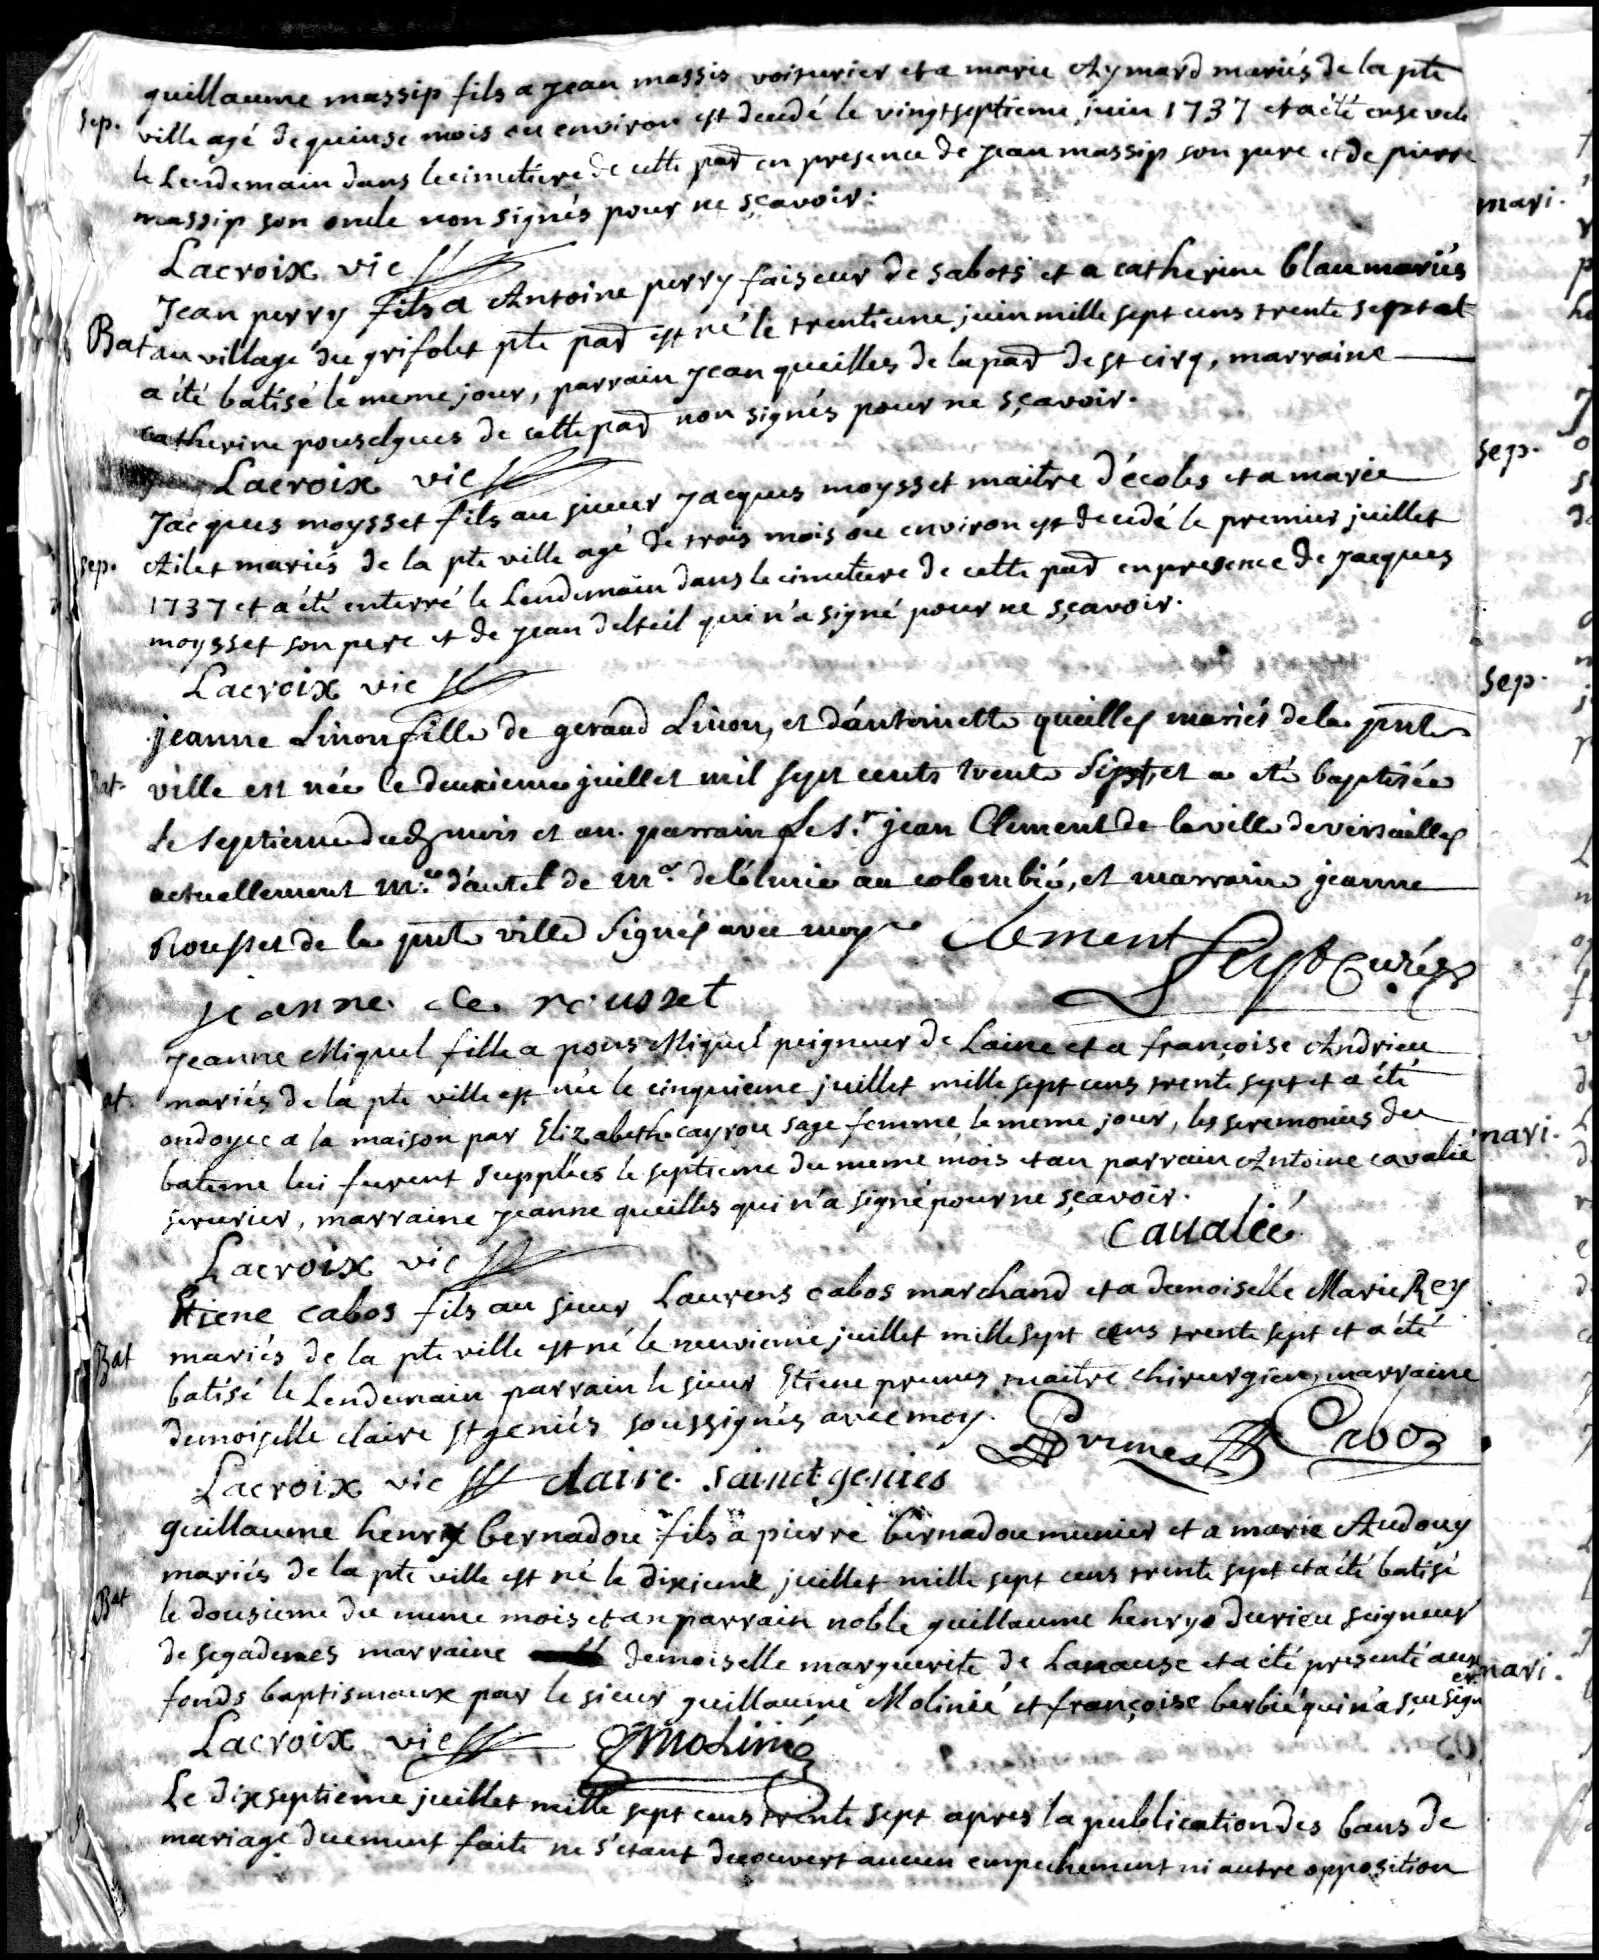 guillaume massip fils a jean massis voiturier et a marie Aymard mariés de la pte
sep. ville agé de quinse mois ou environ est decedé le vingtseptieme juin 1737 et a été enseveli
le Lendemain dans le cimetiere de cette pad en presence de jean massip son pere et de pierre
massip son oncle non signés pour ne sçavoir.
Lacroix vic
Jean perry fils a Antoine perry faiseur de sabots et a catherine blau mariés
Bat au village du grifolet pte pad est né le trentieme juin mille sept cens trente sept et
a été batisé le meme jour, parrain jean queilles de la pad de st cirq, marraine
catherine pouselgues de cette pad non signés pour ne sçavoir.
Lacroix vic
Jacques moysset fils au sieur Jacques moysset maitre d'écoles et a marie
sep. Ailet mariés de la pte ville agé de trois mois ou environ est decedé le premier juillet
1737 et a été enterré le Lendemain dans le cimetiere de cette pad en presence de Jacques
moysset son pere et de jean delteil qui n'a signé pour ne sçavoir.
Lacroix vic
jeanne Linon fille de geraud Linon, et d'antoinette queilles mariés de la pnte
Bat. ville est née le deuxieme juillet mil sept cents trente sept, et a eté baptisée
le septieme dud mois et an. parrain le S.r jean Clement de la ville de versailles
actuellement m.e d'autel de m.r de au colombié, et marraine jeanne
Rousset de la pnte ville signés avec moy
Clement
Curé
jeanne de rousset
Jeanne Miquel fille a pons Miquel peigneur de Laine et a françoise Andrieu
at. mariés de la pte ville est née le cinquieme juillet mille sept cens trente sept et a été
ondoyee a la maison par Elizabeth cayrou sage femme le meme jour, les seremonies du
bateme lui furent supplées le septieme du meme mois et an parrain Antoine cavalié
serurier, marraine jeanne queilles qui n'a signé pour ne sçavoir.
Caualié
Lacroix vic
Etiene cabos fils au sieur Laurens cabos marchand et a demoiselle Marie Rey
Bat mariés de la pte ville est né le neuvieme juillet mille sept cens trente sept et a été
batisé le Lendemain parrain le sieur Etiene prunes maitre chirurgien, marraine
demoiselle claire st geniés soussignés avec moy.
Prunes Cabos
Lacroix vic claire sainct genies
guillaume henry bernadou fils a pierre bernadou munier et a marie Audouy
mariés de la pte ville est né le dixieme juillet mille sept cens trente sept et a été batisé
Bat le dousieme du meme mois et an parrain noble guillaume henry durieu seigneur
de segadenes marraine demoiselle marguerite de Lanause et a été presenté aux
fonds baptismaux par le sieur guillaume Molinié et françoise berbié qui n'a sçeu sign
er.
Lacroix vic Molinié
Le dixseptieme juillet mille sept cens trente sept apres la publication des bans de
mariage duement faite ne s'etant decouvert aucun empechement ni autre opposition
mari.
sep.
sep.
mari.
mari.